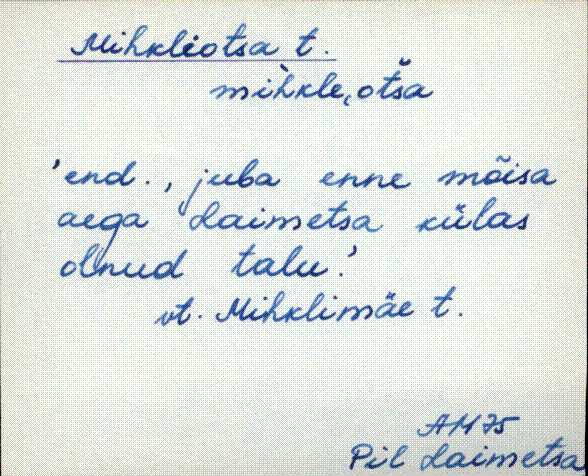 Mihkliotsa t.
mìhkle͔otša
'end., juba enne mõisa
aega Laimetsa külas
olnud talu.'
vt. Mihklimäe t.
AM 75
Pil Laimetsa